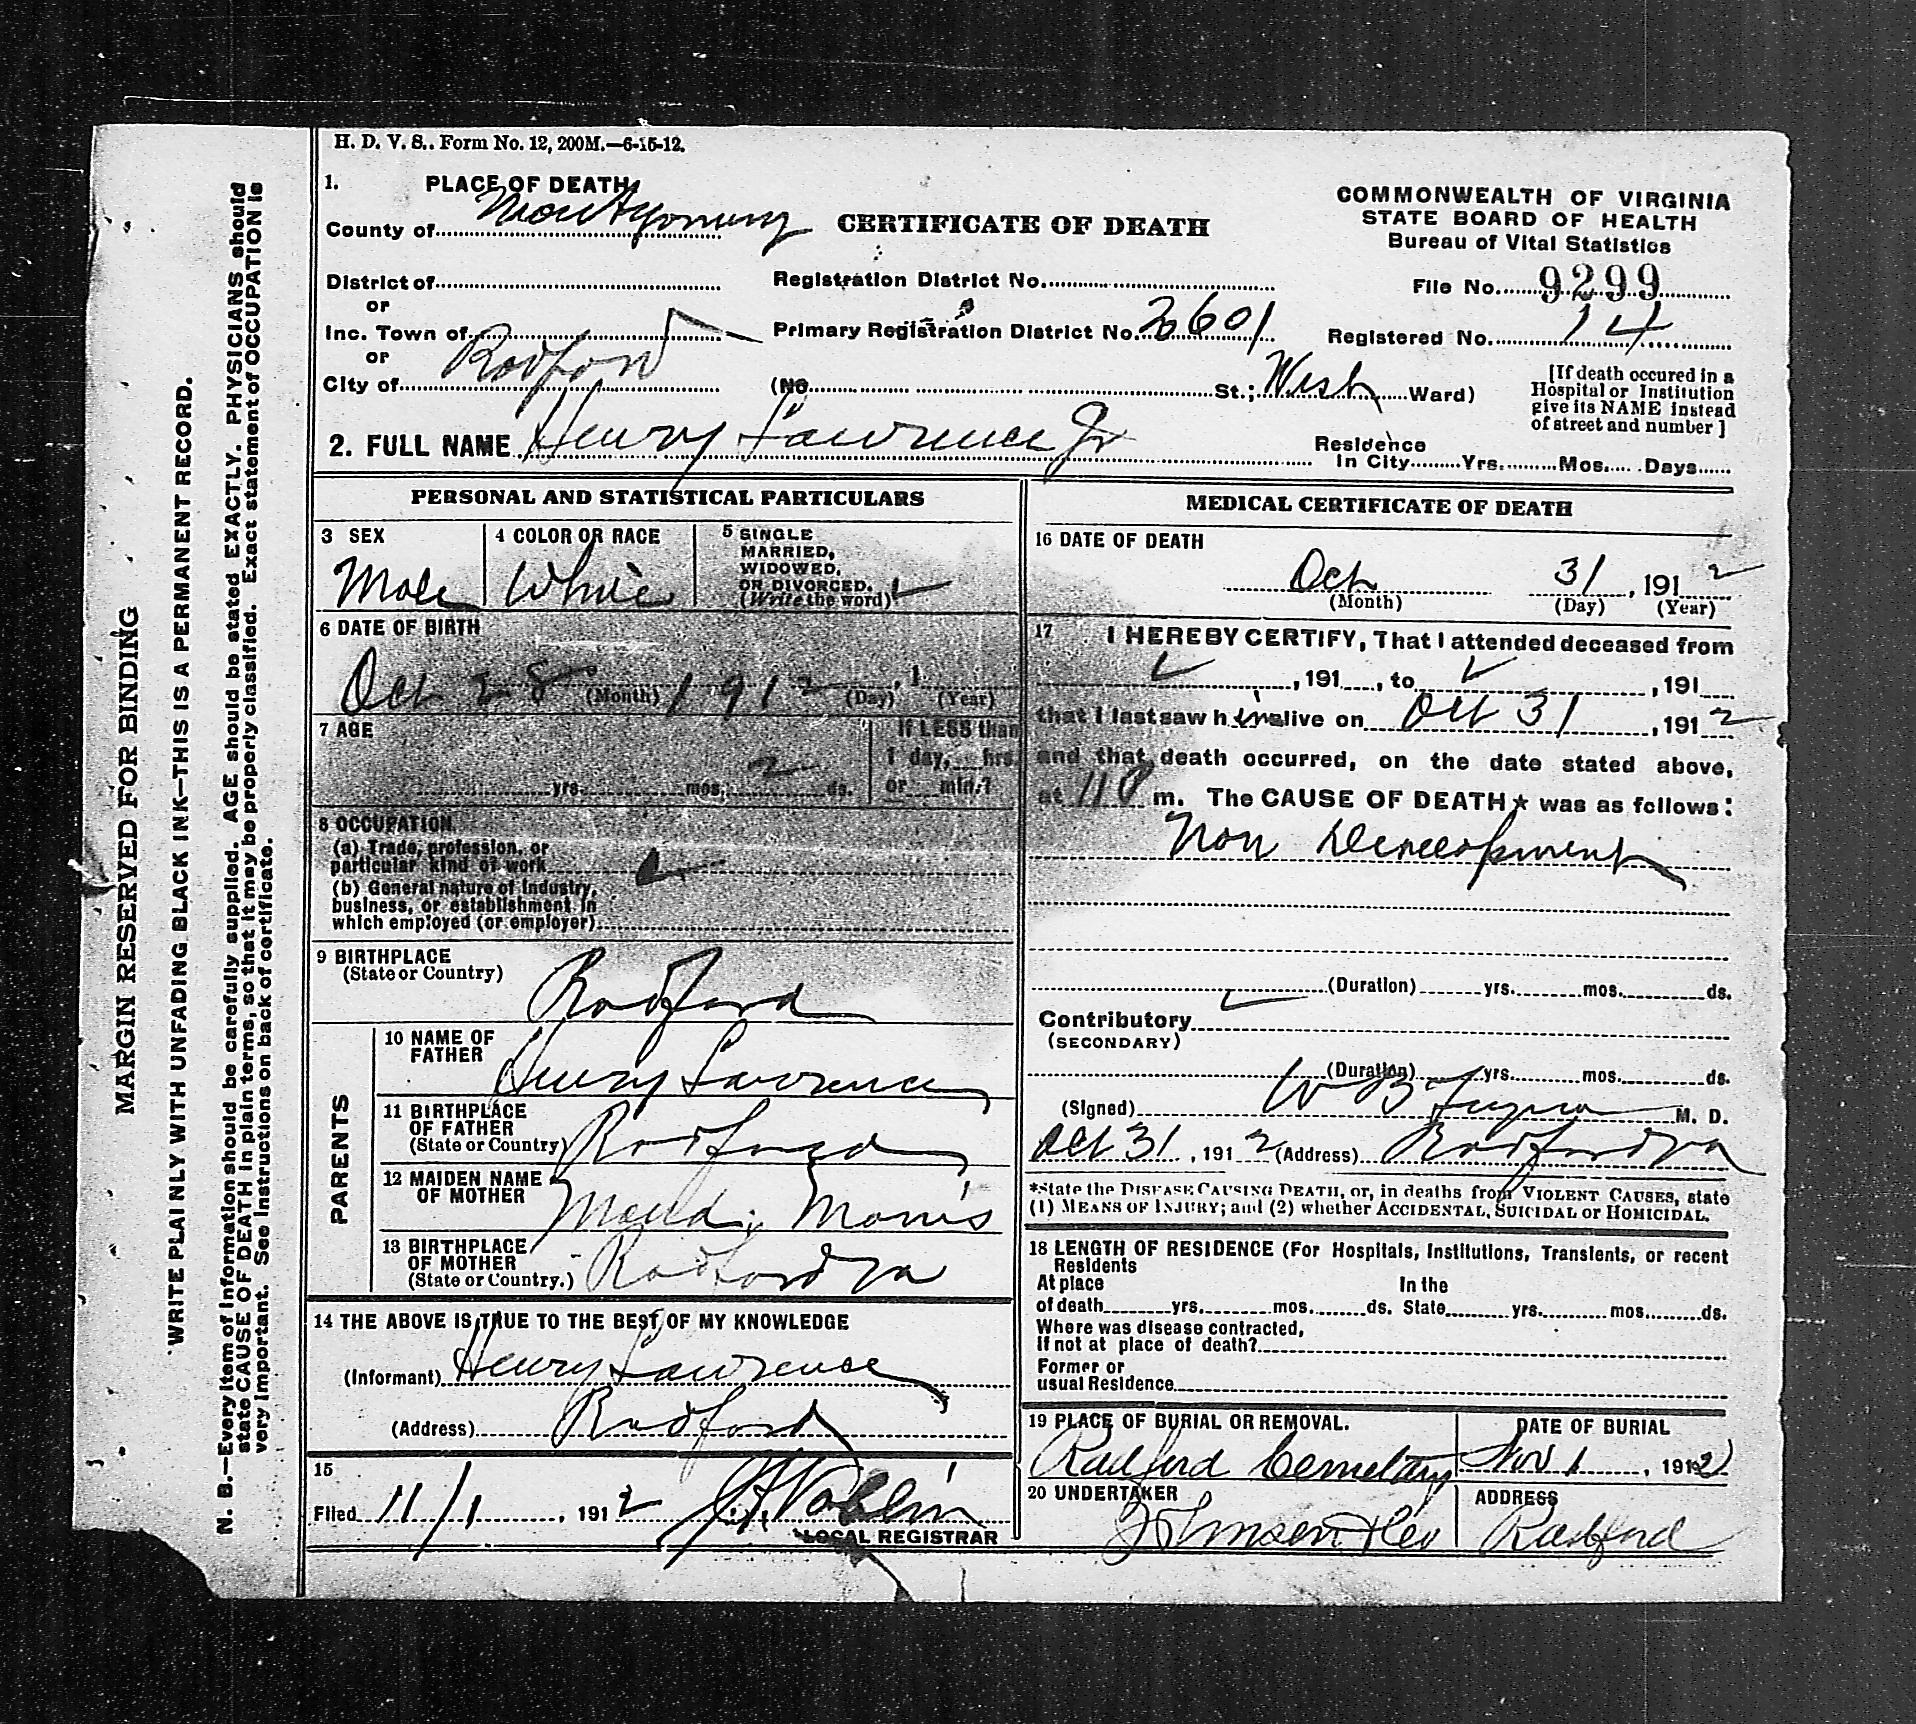 H. D. V. S.. Form No. 12, 200M.—6-15-12.
1. PLACE OF DEATH
County of Montgomery
CERTIFICATE OF DEATH
COMMONWEALTH OF VIRGINIA
STATE BOARD OF HEALTH
Bureau of Vital Statistics
District of
Registration District No.
File No. 9299
or
Inc. Town of
Primary Registration District No. 2601
Registered No. 14
or
City of Radford
(No. St.; West Ward)
[If death occured in a
Hospital or Institution
give its NAME instead
of street and number ]
2. FULL NAME Henry Lawrence Jr
Residence
In City Yrs. Mos. Days
PERSONAL AND STATISTICAL PARTICULARS
3 SEX
Male
4 COLOR OR RACE
White
5 SINGLE
MARRIED,
WIDOWED,
OR DIVORCED.
(Write the word)
6 DATE OF BIRTH
Oct 28 1912
(Month) (Day) , 1 (Year)
7 AGE
yrs. mos. 2 ds.
If LESS than
1 day, hrs.
or min.?
8 OCCUPATION
(a) Trade, profession, or
particular kind of work
(b) General nature of Industry,
business, or establishment in
which employed (or employer)
9 BIRTHPLACE
(State or Country)
Radford
PARENTS
10 NAME OF
FATHER
Henry Lawrence
11 BIRTHPLACE
OF FATHER
(State or Country)
Radford
12 MAIDEN NAME
OF MOTHER
Maud Morris
13 BIRTHPLACE
OF MOTHER
(State or Country.)
Radford Va
14 THE ABOVE IS TRUE TO THE BEST OF MY KNOWLEDGE
(Informant) Henry Lawrence
(Address) Radford
15
Filed 11/1, 1912
LOCAL REGISTRAR
MEDICAL CERTIFICATE OF DEATH
16 DATE OF DEATH
Oct 31, 1912
(Month) (Day) (Year)
17 I HEREBY CERTIFY, That I attended deceased from
, 191 , to , 191
that I last saw him alive on Oct 31, 1912
and that death occurred, on the date stated above,
at 11 P m. The CAUSE OF DEATH* was as follows:
Non Development
(Duration) yrs. mos. ds.
Contributory
(SECONDARY)
(Duration) yrs. mos. ds.
(Signed) W B M. D.
Oct 31, 1912 (Address) Radford Va
*State the DISEASE CAUSING DEATH, or, in deaths from VIOLENT CAUSES, state
(1) MEANS OF INJURY; and (2) whether ACCIDENTAL, SUICIDAL or HOMICIDAL.
18 LENGTH OF RESIDENCE (For Hospitals, Institutions, Transients, or recent
Residents
At place In the
of death yrs. mos. ds. State yrs. mos. ds.
Where was disease contracted,
If not at place of death?
Former or
usual Residence
19 PLACE OF BURIAL OR REMOVAL.
Radford Cemetery
DATE OF BURIAL
Nov 1, 1912
20 UNDERTAKER
ADDRESS
Radford
MARGIN RESERVED FOR BINDING
WRITE PLAINLY WITH UNFADING BLACK INK—THIS IS A PERMANENT RECORD.
N. B.—Every item of information should be carefully supplied. AGE should be stated EXACTLY. PHYSICIANS should
state CAUSE OF DEATH in plain terms, so that it may be properly classified. Exact statement of OCCUPATION is
very important. See instructions on back of certificate.